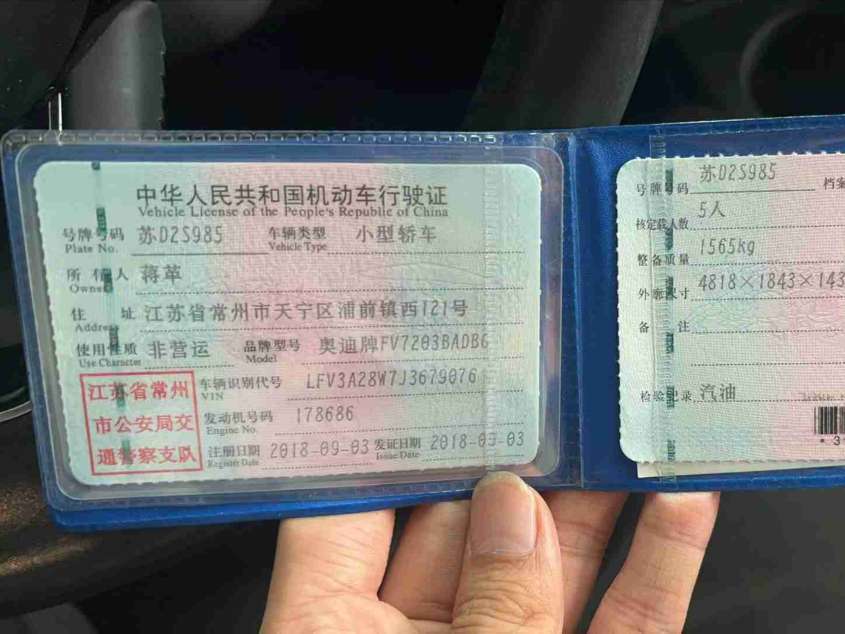 中华人民共和国机动车行驶证
Vehicle License of the People's Republic of China
号牌号码 苏D2S985 车辆类型 小型轿车
Plate No. Vehicle Type
所有人 蒋革
Owner
住 址 江苏省常州市天宁区浦前镇西121号
Address
使用性质 非营运 品牌型号 奥迪牌FV7203BADBG
Use Character Model
江苏省常州
市公安局交
通警察支队
车辆识别代号 LFV3A28W7J3679076
VIN
发动机号码 178686
Engine No.
注册日期 2018-09-03 发证日期 2018-09-03
Register Date Issue Date
号牌号码 苏D2S985 档案
核定载人数 5人
整备质量 1565kg
外廓尺寸 4818×1843×143
备 注
检验记录 汽油
*3